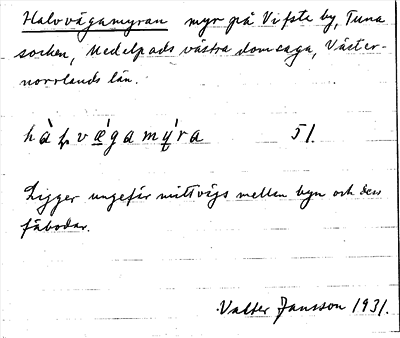 Halvvägamyran myr på Vifsta by, Tuna
socken, Medelpads västra domsaga, Väster-
norrlands län.
51.
Ligger ungefär mittvägs mellan byn och dess
fäbodar.
Valter Jansson 1931.